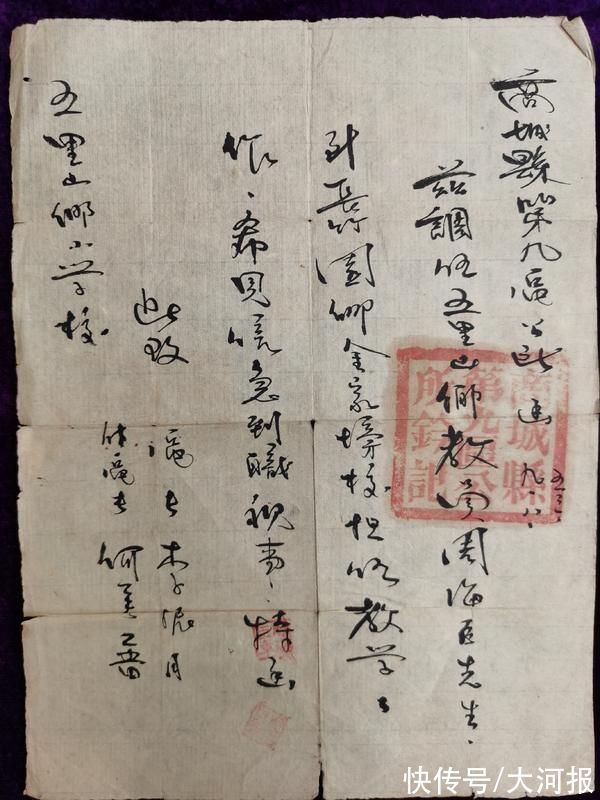 商城縣第九區公所函 五三、九、八、
茲調你五里山鄉教员周海臣先生、
到長竹園鄉金家塝校担任教学工
作、希見信急到職視事、特函
此致
五里山鄉小学校
區長 李
付區長 何
商城縣第九區公所鈐記
快传号/大河报